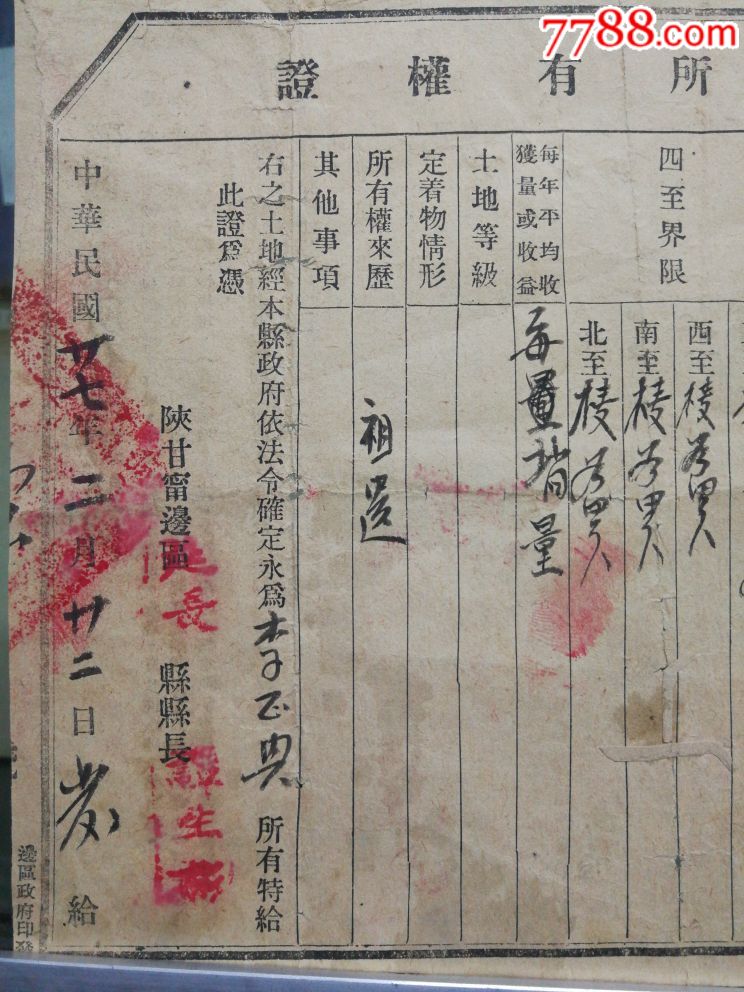 7788.com
所有權證
四至界限
西至棱为界
南至棱为界
北至棱为界
每年平均收
獲量或收益
土地等級
定着物情形
所有權來歷 祖遺
其他事項
右之土地經本縣政府依法令確定永爲李正典所有特給
此證爲憑
陝甘甯邊區延長縣縣長 生彬
中華民國廿七年二月廿二日發給
邊區政府印發